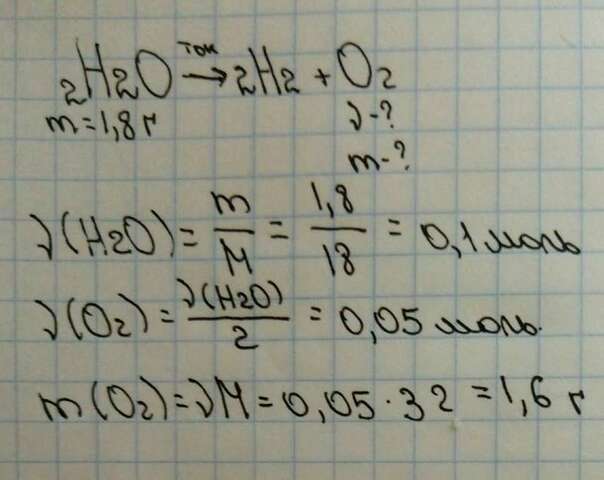 ток
2H2O → 2H2 + O2
m=1,8 г
ν-?
m-?
ν(H2O)= m/M = 1,8/18 = 0,1 моль
ν(O2)= ν(H2O)/2 = 0,05 моль.
m(O2)=νM=0,05·32=1,6 г